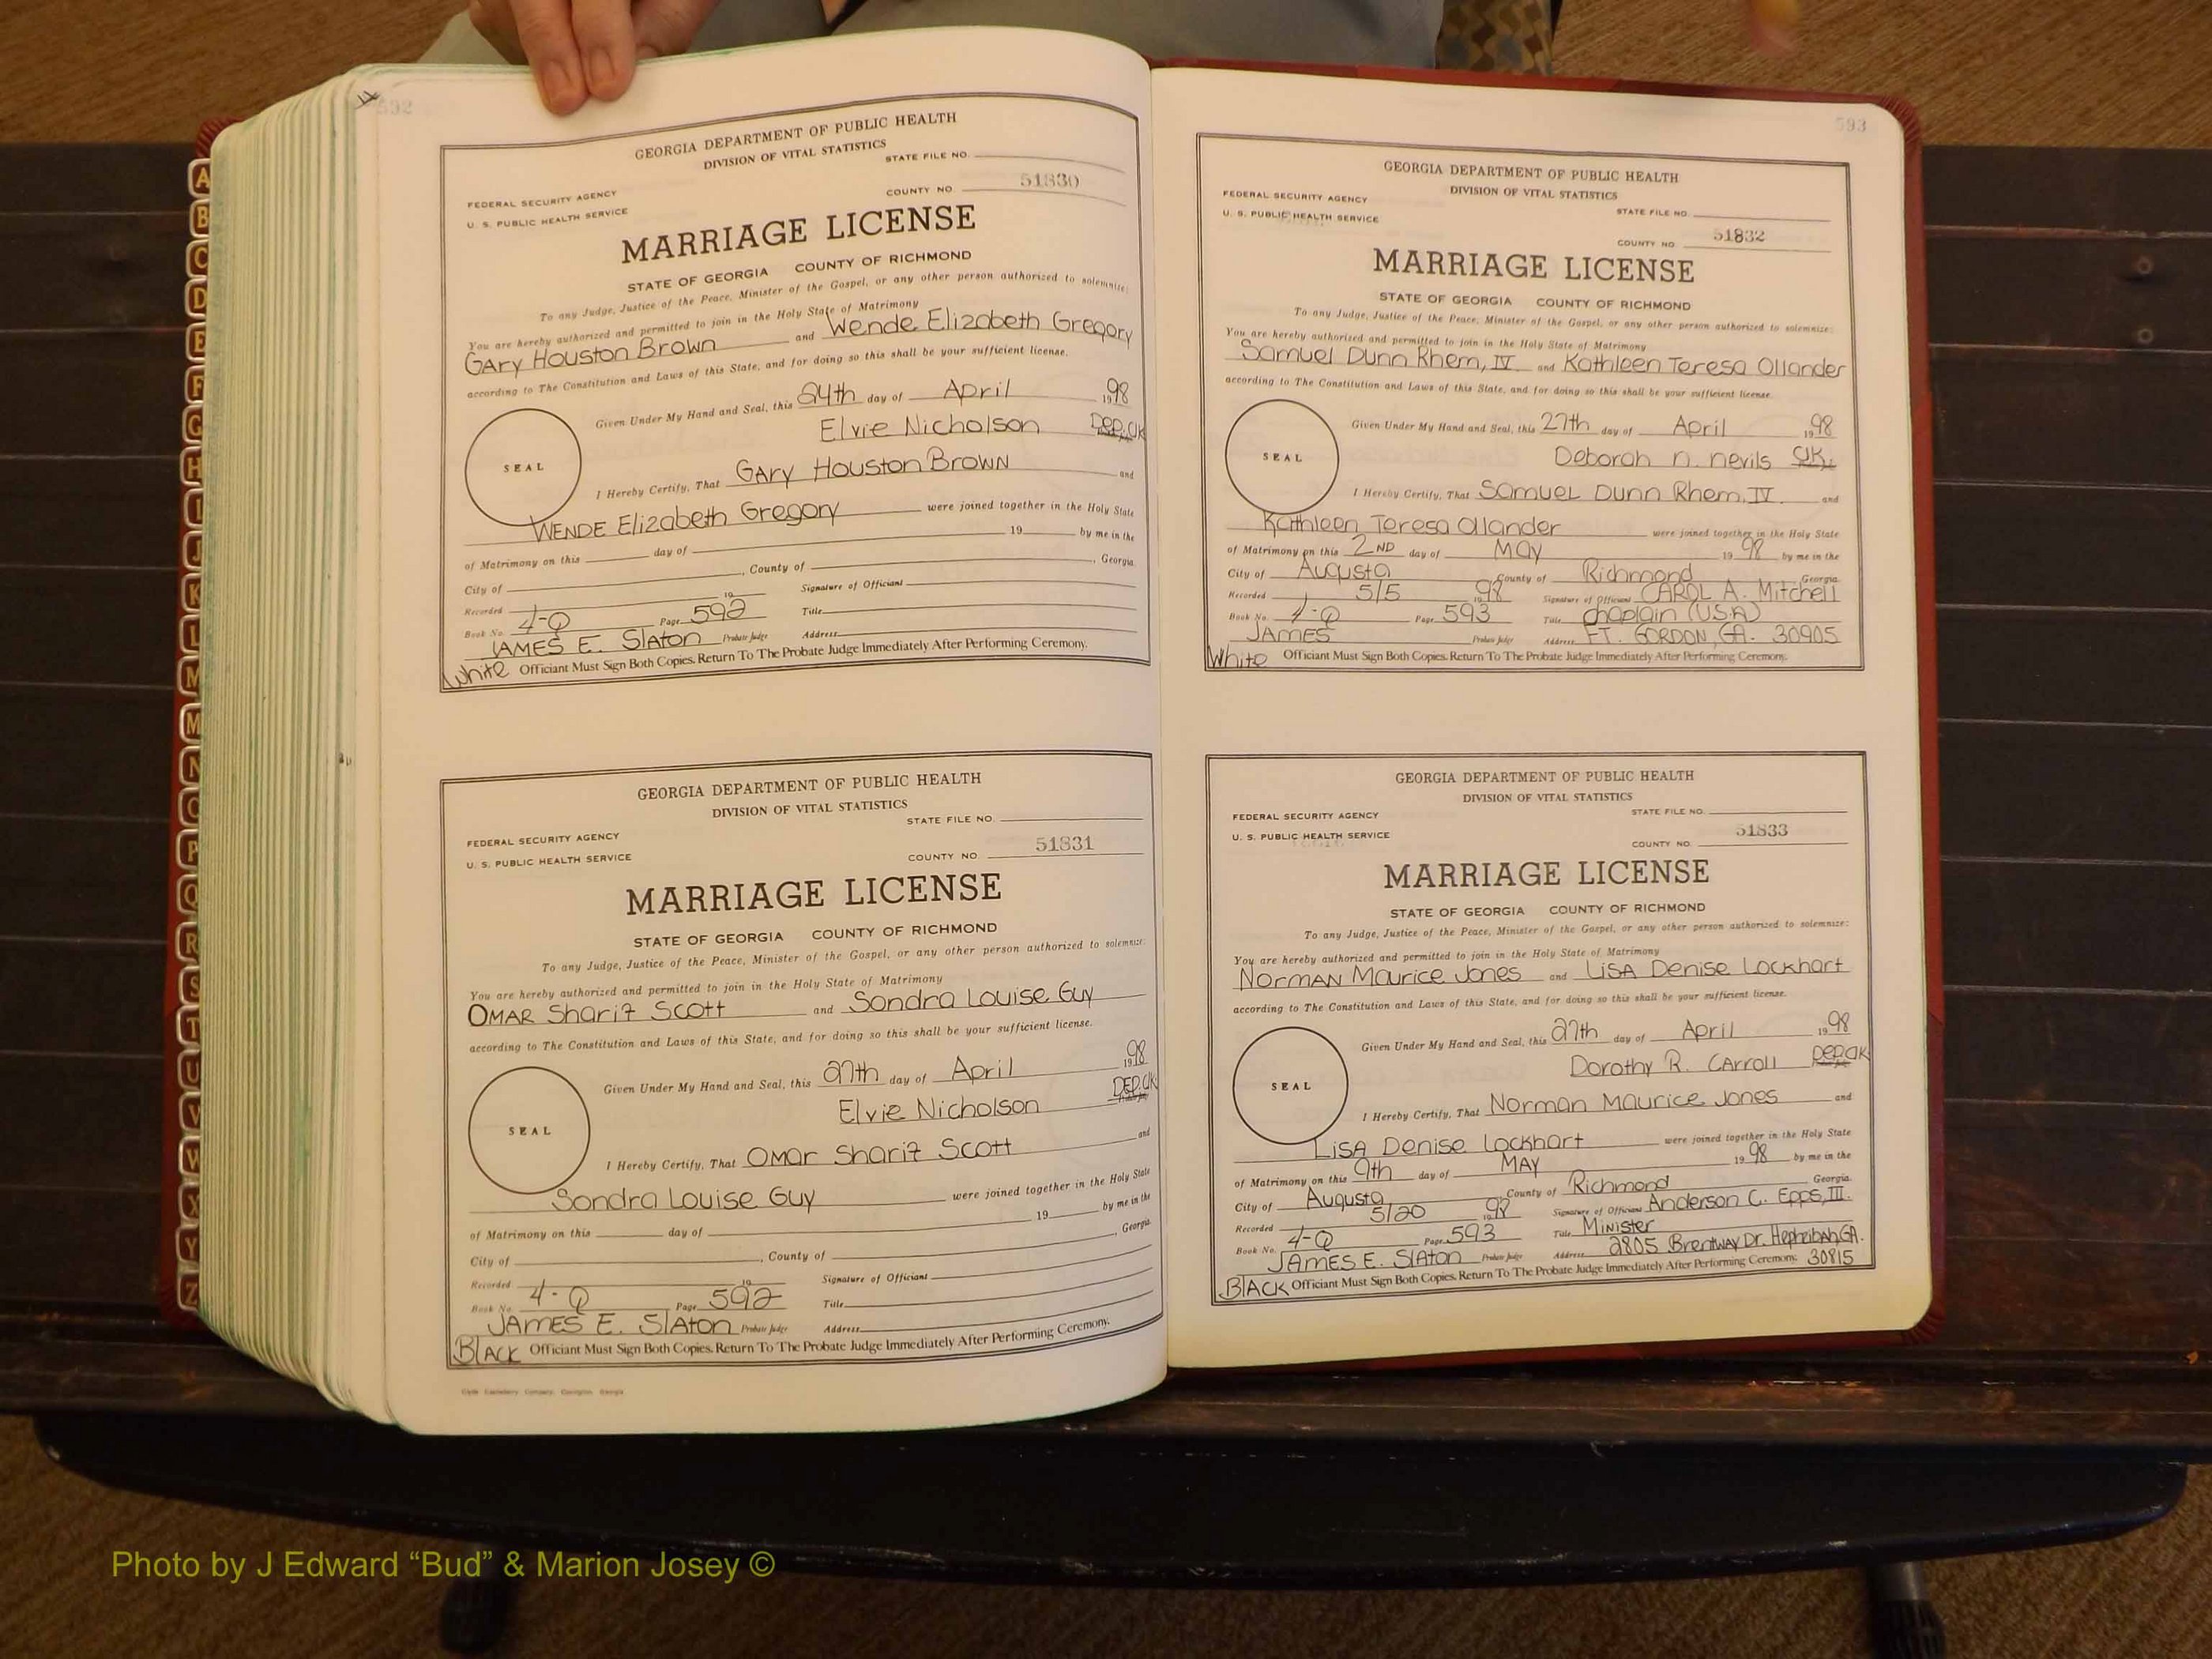 532
GEORGIA DEPARTMENT OF PUBLIC HEALTH
DIVISION OF VITAL STATISTICS
STATE FILE NO.
FEDERAL SECURITY AGENCY
U. S. PUBLIC HEALTH SERVICE
COUNTY NO. 51830
MARRIAGE LICENSE
STATE OF GEORGIA COUNTY OF RICHMOND
To any Judge, Justice of the Peace, Minister of the Gospel, or any other person authorized to solemnize:
You are hereby authorized and permitted to join in the Holy State of Matrimony
GAry Houston Brown and Wende Elizabeth Gregory
according to The Constitution and Laws of this State, and for doing so this shall be your sufficient license.
Given Under My Hand and Seal, this 24th day of April 1998
Elvie Nicholson DEP. CLK
SEAL
I Hereby Certify, That GAry Houston Brown and
WENDE Elizabeth Gregory were joined together in the Holy State
of Matrimony on this day of 19 by me in the
City of , County of , Georgia.
Recorded 19 Signature of Officiant
Book No. 4-Q Page 592 Title
JAMES E. SlAton Probate Judge Address
White Officiant Must Sign Both Copies. Return To The Probate Judge Immediately After Performing Ceremony.
GEORGIA DEPARTMENT OF PUBLIC HEALTH
DIVISION OF VITAL STATISTICS
STATE FILE NO.
FEDERAL SECURITY AGENCY
U. S. PUBLIC HEALTH SERVICE
COUNTY NO. 51831
MARRIAGE LICENSE
STATE OF GEORGIA COUNTY OF RICHMOND
To any Judge, Justice of the Peace, Minister of the Gospel, or any other person authorized to solemnize:
You are hereby authorized and permitted to join in the Holy State of Matrimony
OMAR Sharif Scott and Sondra Louise Guy
according to The Constitution and Laws of this State, and for doing so this shall be your sufficient license.
Given Under My Hand and Seal, this 27th day of April 1998
Elvie Nicholson DEP. CLK
SEAL
I Hereby Certify, That Omar Sharif Scott and
Sondra Louise Guy were joined together in the Holy State
of Matrimony on this day of 19 by me in the
City of , County of , Georgia.
Recorded 19 Signature of Officiant
Book No. 4-Q Page 592 Title
JAMES E. SlAton Probate Judge Address
BlACK Officiant Must Sign Both Copies. Return To The Probate Judge Immediately After Performing Ceremony.
593
GEORGIA DEPARTMENT OF PUBLIC HEALTH
DIVISION OF VITAL STATISTICS
FEDERAL SECURITY AGENCY
STATE FILE NO.
U. S. PUBLIC HEALTH SERVICE
COUNTY NO 51832
MARRIAGE LICENSE
STATE OF GEORGIA COUNTY OF RICHMOND
To any Judge, Justice of the Peace, Minister of the Gospel, or any other person authorized to solemnize:
You are hereby authorized and permitted to join in the Holy State of Matrimony
Samuel Dunn Rhem, IV and Kathleen Teresa Ollander
according to The Constitution and Laws of this State, and for doing so this shall be your sufficient license.
Given Under My Hand and Seal, this 27th day of April 1998
Deborah n. nevils Clk.
SEAL
I Hereby Certify, That Samuel Dunn Rhem, IV. and
Kathleen Teresa Ollander were joined together in the Holy State
of Matrimony on this 2ND day of MAy 1998 by me in the
City of Augusta County of Richmond Georgia.
Recorded 5/5 1998 Signature of Officiant CAROL A. Mitchell
Book No. 4-Q Page 593 Title chaplain (USA)
JAMES Probate Judge Address FT. GORDON, GA. 30905
White Officiant Must Sign Both Copies. Return To The Probate Judge Immediately After Performing Ceremony.
GEORGIA DEPARTMENT OF PUBLIC HEALTH
DIVISION OF VITAL STATISTICS
FEDERAL SECURITY AGENCY
STATE FILE NO.
U. S. PUBLIC HEALTH SERVICE
COUNTY NO. 51833
MARRIAGE LICENSE
STATE OF GEORGIA COUNTY OF RICHMOND
To any Judge, Justice of the Peace, Minister of the Gospel, or any other person authorized to solemnize:
You are hereby authorized and permitted to join in the Holy State of Matrimony
NorMAN MAurice Jones and LiSA Denise Lockhart
according to The Constitution and Laws of this State, and for doing so this shall be your sufficient license.
Given Under My Hand and Seal, this 27th day of April 1998
Dorothy R. CArroll DEP. Clk
SEAL
I Hereby Certify, That Norman Maurice Jones and
LiSA Denise Lockhart were joined together in the Holy State
of Matrimony on this 9th day of MAY 1998 by me in the
City of Augusta County of Richmond Georgia.
Recorded 5/20 1998 Signature of Officiant Anderson C. Epps, III.
Book No. 4-Q Page 593 Title Minister
JAMES E. SlAton Probate Judge Address 2805 Brentway Dr. Hephzibah, GA.
BlACK Officiant Must Sign Both Copies. Return To The Probate Judge Immediately After Performing Ceremony. 30815
A
B
C
D
E
F
G
H
I
J
K
L
M
M
N
O
P
Q
R
S
T
U
V
W
X
Y
Z
Photo by J Edward “Bud” & Marion Josey ©